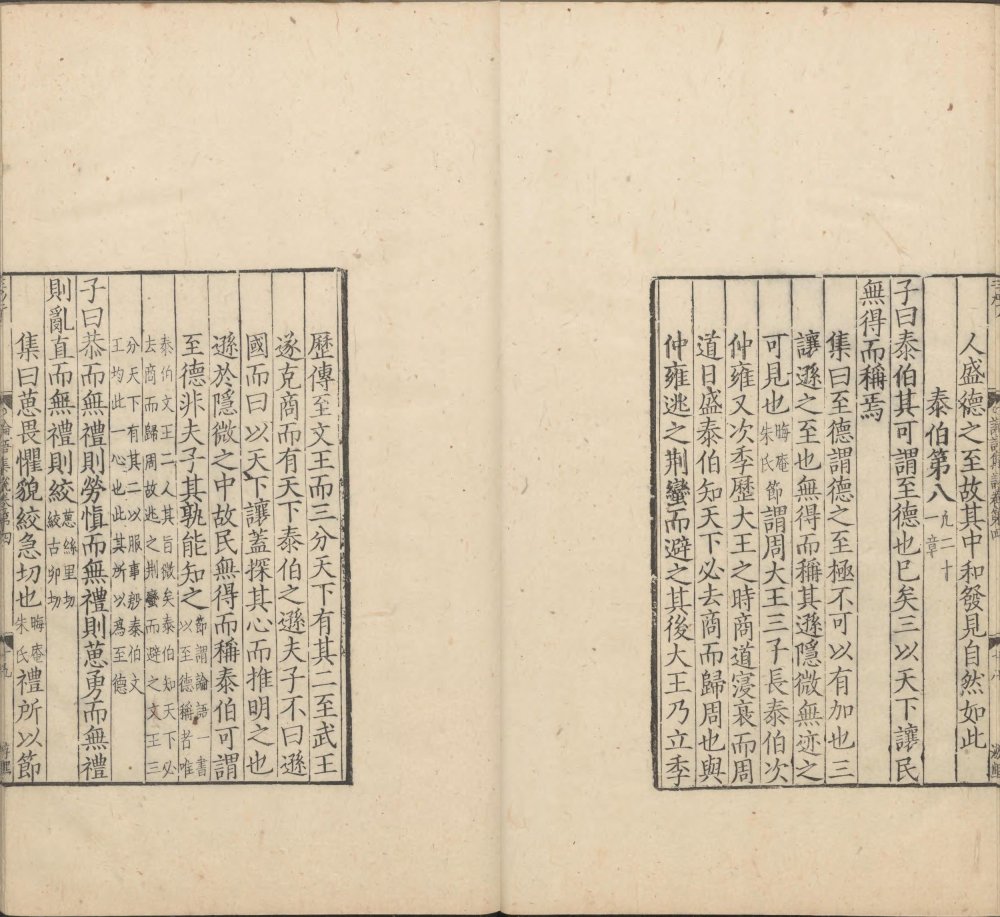 人盛德之至故其中和發見自然如此
泰伯第八凡二十一章
子曰泰伯其可謂至德也已矣三以天下讓民
無得而稱焉
集曰至德謂德之至極不可以有加也三
讓遜之至也無得而稱其遜隱微無迹之
可見也晦庵朱氏節謂周大王三子長泰伯次
仲雍又次季歷大王之時商道寖衰而周
道日盛泰伯知天下必去商而歸周也與
仲雍逃之荆蠻而避之其後大王乃立季
歷傳至文王而三分天下有其二至武王
遂克商而有天下泰伯之遜夫子不曰遜
國而曰以天下讓蓋探其心而推明之也
遜於隱微之中故民無得而稱泰伯可謂
至德非夫子其孰能知之節謂論語一書以至德稱者唯
泰伯文王二人其旨微矣泰伯知天下必
去商而歸周故逃之荆蠻而避之文王三
分天下有其二以服事殷泰伯文
王均此一心也此其所以爲至德
子曰恭而無禮則勞慎而無禮則葸勇而無禮
則亂直而無禮則絞葸絲里切絞古卯切
集曰葸畏懼貌絞急切也晦庵朱氏禮所以節